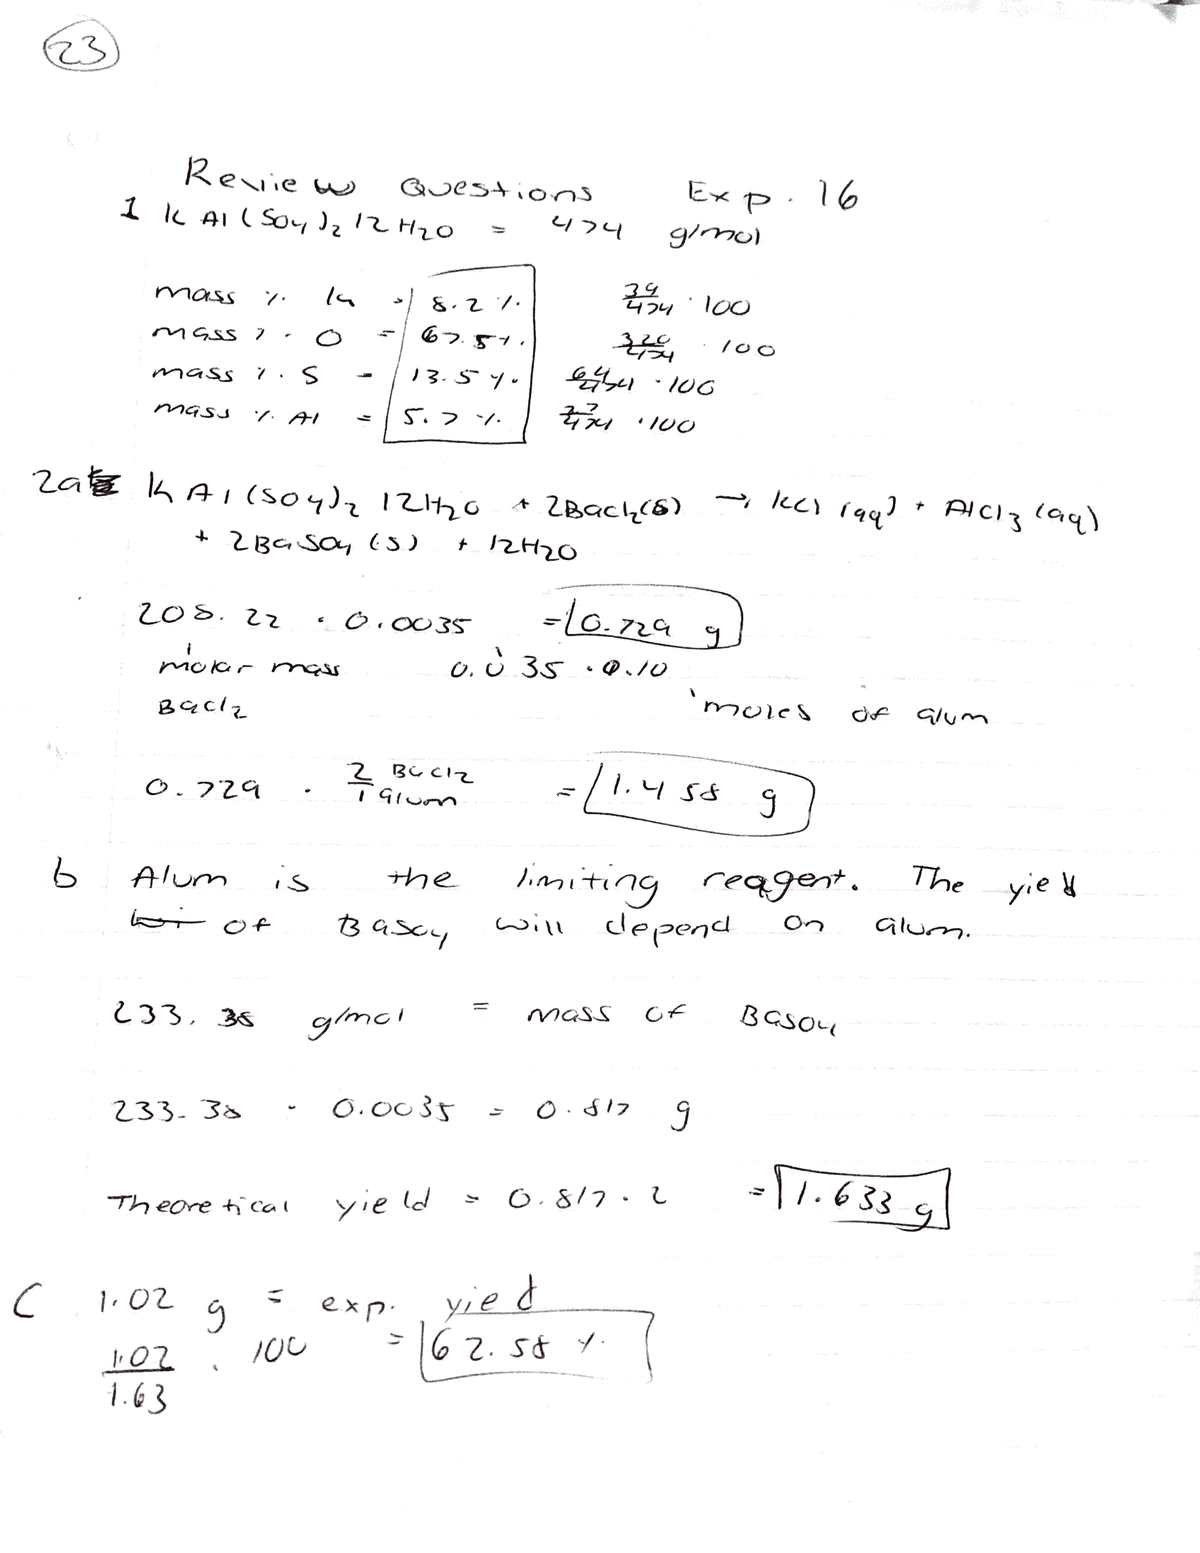 23
Review Questions Exp. 16
1 KAl(SO4)2 12H2O = 474 g/mol
mass % K = 8.2 % 39/474 · 100
mass % O = 67.5 % 320/474 · 100
mass % S = 13.5 % 64/474 · 100
mass % Al = 5.7 % 27/474 · 100
2a KAl(SO4)2 12H2O + 2BaCl2(s) → KCl (aq) + AlCl3 (aq)
+ 2BaSO4 (s) + 12H2O
208.22 · 0.0035 = 0.729 g
molar mass 0.035 · 0.10
BaCl2 moles of alum
0.729 · 2 BaCl2 / 1 alum = 1.458 g
b Alum is the limiting reagent. The yield
of BaSO4 will depend on alum.
233.38 g/mol = mass of BaSO4
233.38 · 0.0035 = 0.817 g
Theoretical yield = 0.817 · 2 = 1.633 g
C 1.02 g = exp. yied
1.02/1.63 · 100 = 62.58 %